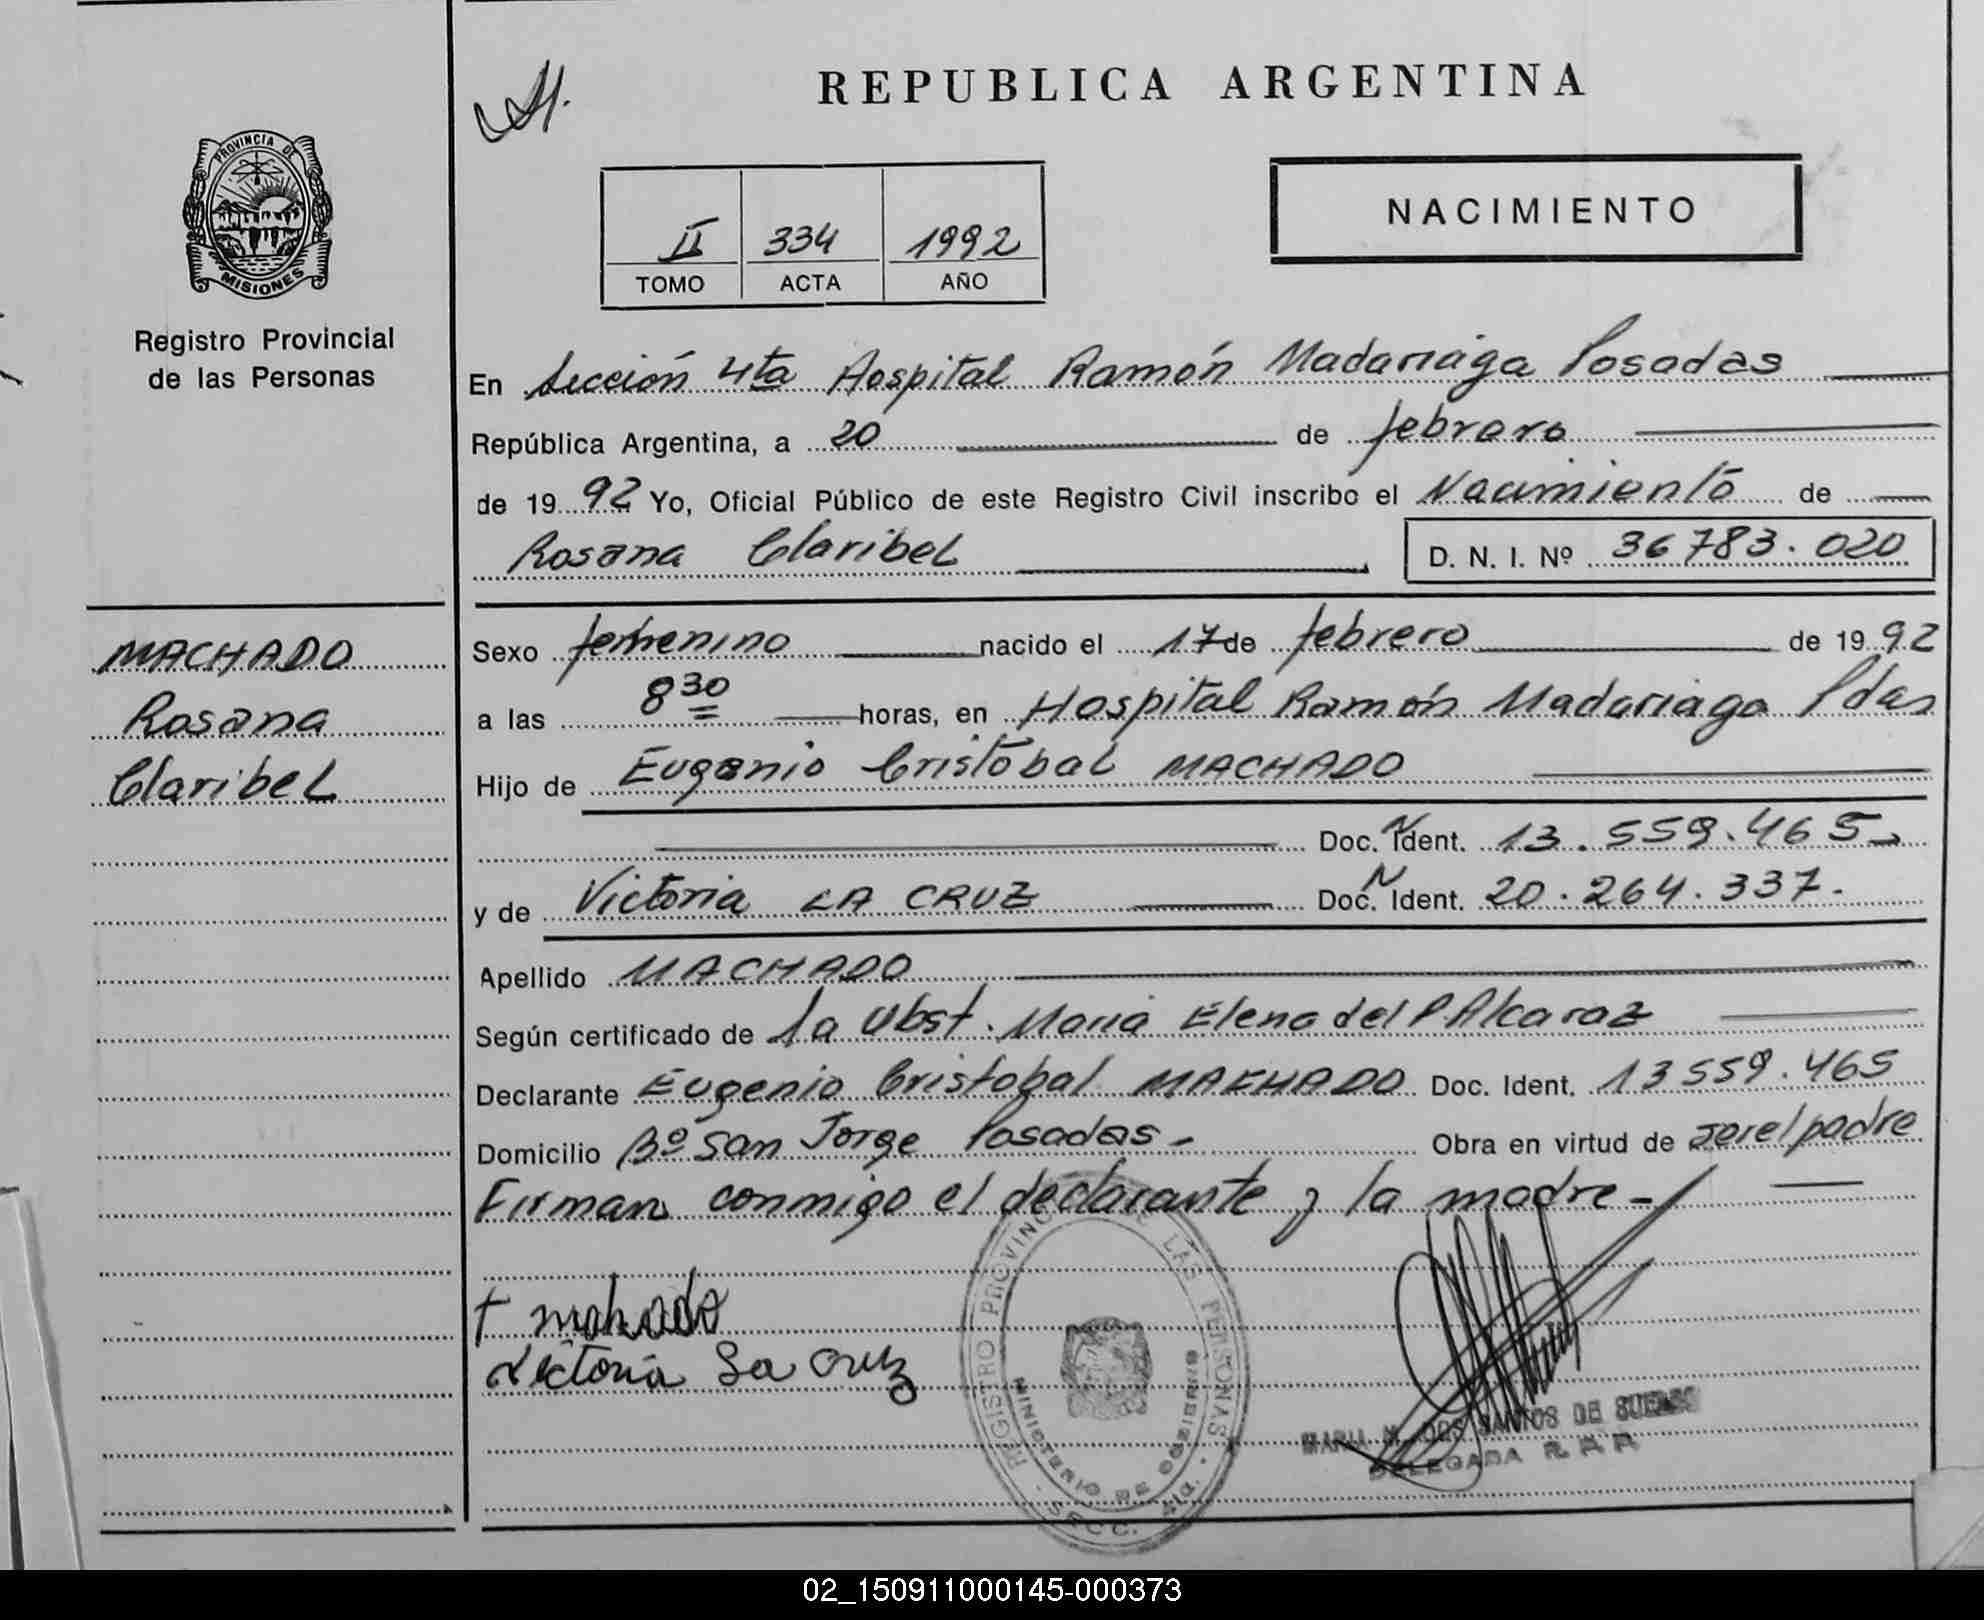 REPUBLICA ARGENTINA
PROVINCIA DE
MISIONES
Registro Provincial
de las Personas
II 334 1992
TOMO ACTA AÑO
NACIMIENTO
En Sección 4ta Hospital Ramón Madariaga Posadas
República Argentina, a 20 de febrero
de 1992 Yo, Oficial Público de este Registro Civil inscribo el Nacimiento de
Rosana Claribel D. N. I. Nº 36783.020
MACHADO
Rosana
Claribel
Sexo femenino nacido el 17 de febrero de 1992
a las 8 30 horas, en Hospital Ramón Madariaga Pdas
Hijo de Eugenio Cristobal MACHADO
Doc. N Ident. 13.559.465
y de Victoria LA CRUZ Doc. N Ident. 20.264.337.
Apellido MACHADO
Según certificado de la Obst. Maria Elena del P Alcaraz
Declarante Eugenio Cristobal MACHADO Doc. Ident. 13559.465
Domicilio Bº San Jorge Posadas. Obra en virtud de ser el padre
Firman conmigo el declarante y la madre
Victoria La Cruz
REGISTRO PROVINCIAL DE LAS PERSONAS
MINISTERIO DE GOBIERNO
SECC. 4ta
DOS SANTOS DE
DELEGADA R. P. P.
02_150911000145-000373